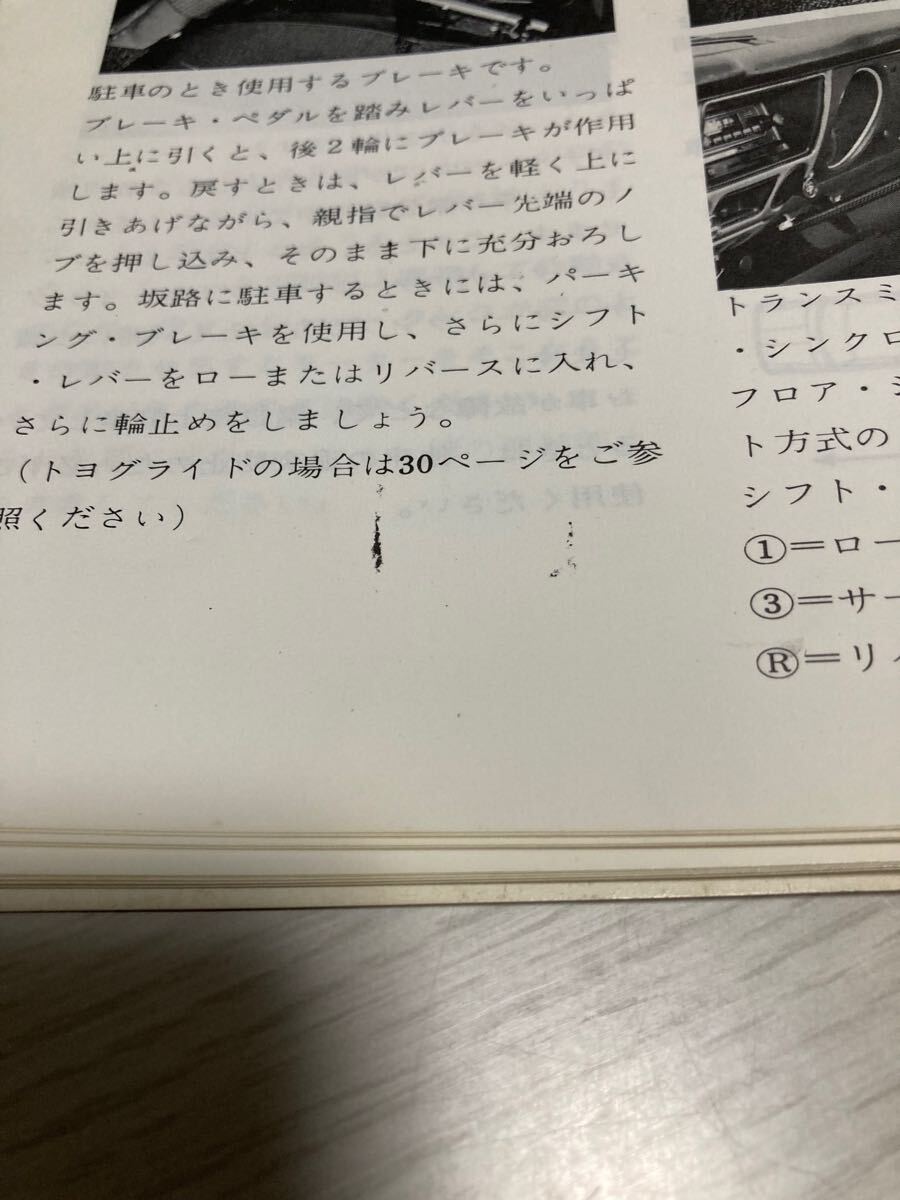 駐車のとき使用するブレーキです。
ブレーキ・ペダルを踏みレバーをいっぱ
い上に引くと、後2輪にブレーキが作用
します。戻すときは、レバーを軽く上に
引きあげながら、親指でレバー先端のノ
ブを押し込み、そのまま下に充分おろし
ます。坂路に駐車するときには、パーキ
ング・ブレーキを使用し、さらにシフト
・レバーをローまたはリバースに入れ、
さらに輪止めをしましょう。
（トヨグライドの場合は30ページをご参
照ください）
トランスミ
・シンクロ
フロア・シ
ト方式の
シフト・
①＝ロー
③＝サー
Ⓡ＝リ